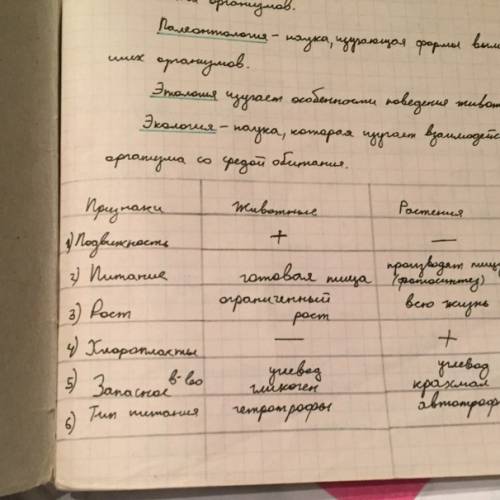 организмов.
Палеонтология - наука, изучающая формы вым
ших организмов.
Этология изучает особенности поведения живот
Экология - наука, которая изучает взаимодейс
организма со средой обитания.
Признаки Животные Растения
1) Подвижность + —
2) Питание готовая пища производят пищу (фотосинтез)
3) Рост ограниченный рост всю жизнь
4) Хлоропласты — +
5) Запасное в-во углевод гликоген углевод крахмал
6) Тип питания гетротрофы автотроф